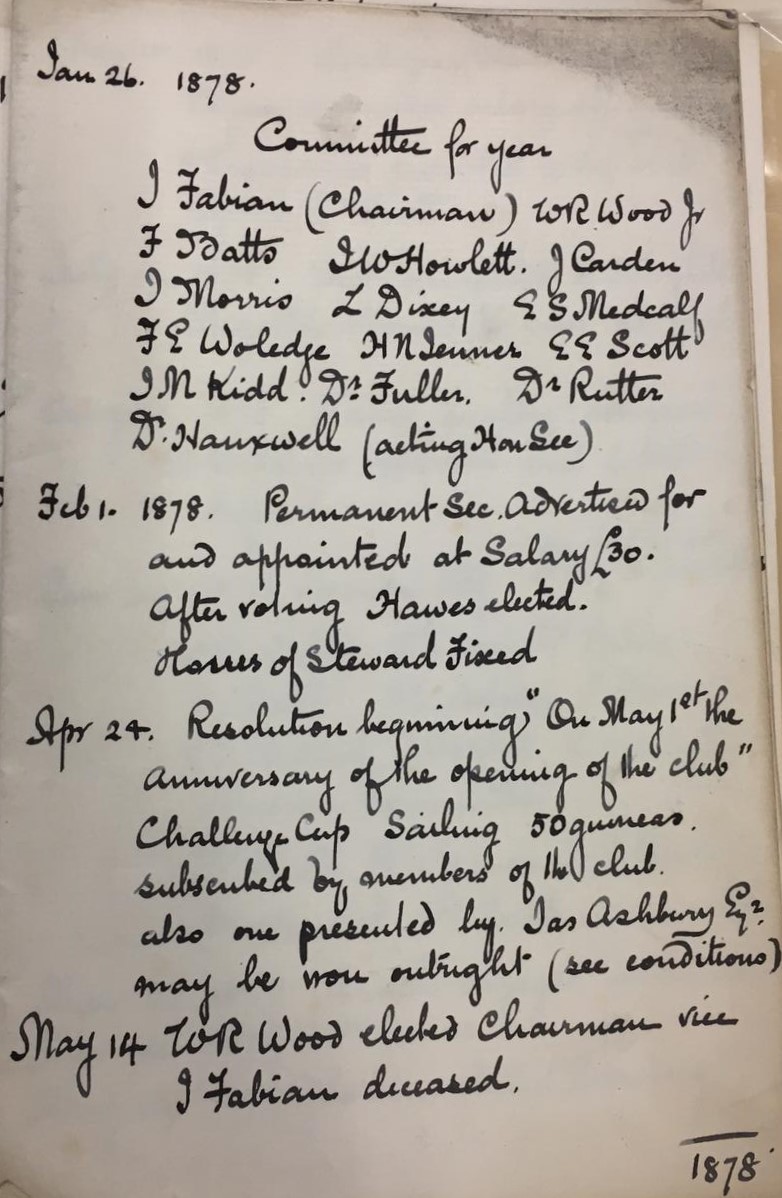 Jan 26. 1878.
Committee for year
J Fabian (Chairman) WR Wood Jr
F Batts J W Howlett. J Carden
J Morris L Dixey E S Medcalf
F E Woledge H N Jenner E E Scott
J M Kidd. Dr Fuller. Dr Rutter
Dr. Hauxwell (acting Hon Sec)
Feb 1. 1878. Permanent Sec. Advertised for
and appointed at Salary £30.
After voting Hawes elected.
Hours of Steward Fixed
Apr 24. Resolution beginning "On May 1st the
anniversary of the opening of the club"
Challenge Cup Sailing 50 guineas.
subscribed by members of the club.
also one presented by. Jas Ashbury Esqr.
may be won outright (see conditions)
May 14 WR Wood elected Chairman vice
J Fabian deceased.
1878.